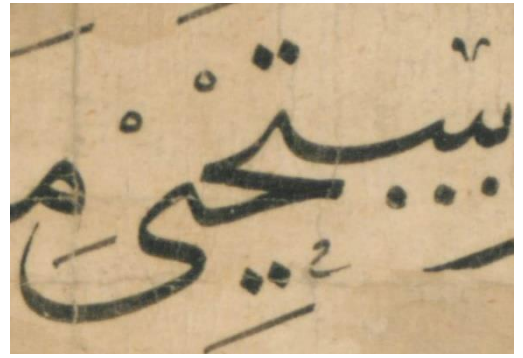 يستحيى